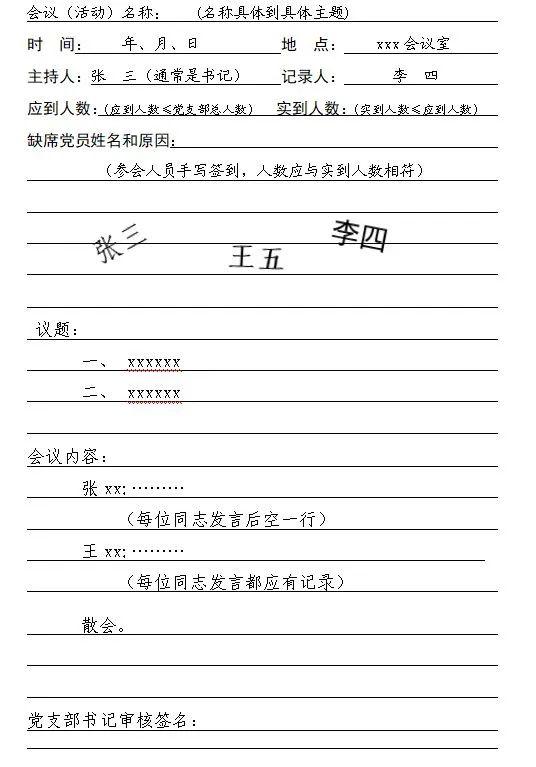 会议（活动）名称： (名称具体到具体主题)
时 间： 年、月、日 地 点： xxx会议室
主持人：张 三（通常是书记） 记录人： 李 四
应到人数：(应到人数≤党支部总人数) 实到人数：(实到人数≤应到人数)
缺席党员姓名和原因：
（参会人员手写签到，人数应与实到人数相符）
张三 王五 李四
议题：
一、 xxxxxx
二、 xxxxxx
会议内容：
张xx:………
（每位同志发言后空一行）
王xx:………
（每位同志发言都应有记录）
散会。
党支部书记审核签名：